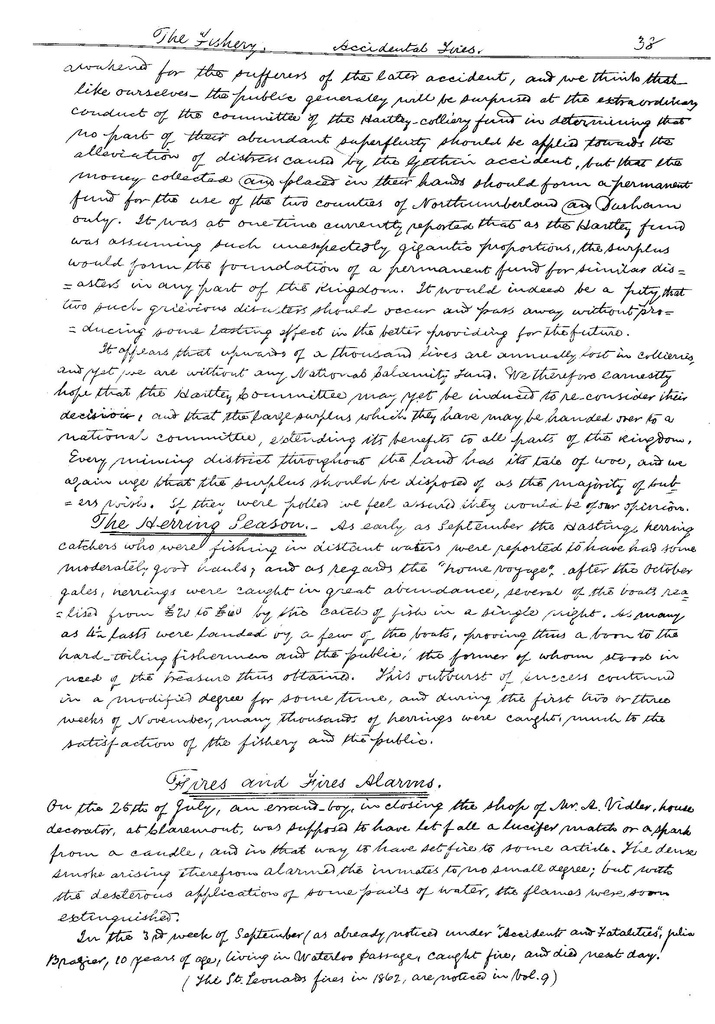 The Fishery. Accidental Fires. 38
awakend for the sufferers of the later accident, and we think that
like ourselves the public generally will be surprised at the extraordinary
conduct of the committee of the Hartley-colliery fund in determining that
no part of their abundant superfluity should be applied towards the
alleviation of distress caused by the Gethin accident, but that the
money collected and placed in their hands should form a permanent
fund for the use of the two counties of Northumberland an Durham
only. It was at one time currently reported that as the Hartley fund
was assuming such unexpectedly gigantic proportions, the surplus
would form the foundation of a permanent fund for similar dis=
=asters in any part of the Kingdom. It would indeed be a pity that
two such grievious disasters should occur and pass away without pro=
=ducing some lasting effect in the better providing for the future.
It appears that upwards of a thousand lives are annually lost in collieries,
and yet we are without any National Calamity Fund. We therefore earnestly
hope that the Hartley Committee may yet be induced to re-consider their
decision, and that the large surplus which they have may be handed over to a
national committee, extending its benefits to all parts of the Kingdom.
Every mining district throughout the land has its tale of woe, and we
again urge that the surplus should be disposed of as the majority of
=ers wish. If they were polled we feel assured they would be of our opinion.
The Herring Season. - As early as September the Hastings herring
catchers who were fishing in distant waters were reported to have had some
moderately good hauls; and as regards the "home voyage", after the October
gales, herrings were caught in great abundance, several of the boats rea=
=lised from £20 to by the catch of fish in a single night. As many
as lasts were landed by a few of the boats, proving thus a boon to the
hard-toiling fishermen and the public, the former of whom stood in
need of the treasure thus obtained. This outburst of success continued
in a modified degree for some time, and during the first two or three
weeks of November, many thousands of herrings were caught, much to the
satisfaction of the fishery and the public.
Fires and Fires Alarms.
On the 25th of July, an errand-boy, in closing the shop of Mr. A. Vidler, house
decorator, at Claremont, was supposed to have let fall a lucifer match or a spark
from a candle, and in that way to have set fire to some article. The dense
smoke arising therefrom alarmed the inmates to no small degree; but with
the dexterous application of some pails of water, the flames were soon
extinguished.
In the 3rd week of September (as already noticed under "Accidents and Fatalities", Julia
Brazier, 10 years of age, living in Waterloo passage, caught fire, and died next day.
(The St. Leonards fires in 1862, are noticed in Vol. 9)